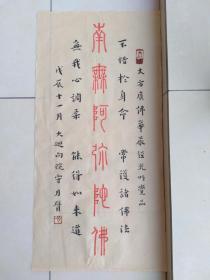 大方廣佛華嚴經光明覺品
不惜於身命 常護諸佛法
南無阿彌陀佛
無我心調柔 能得如來道
戊辰十一月 大迴向院 月臂